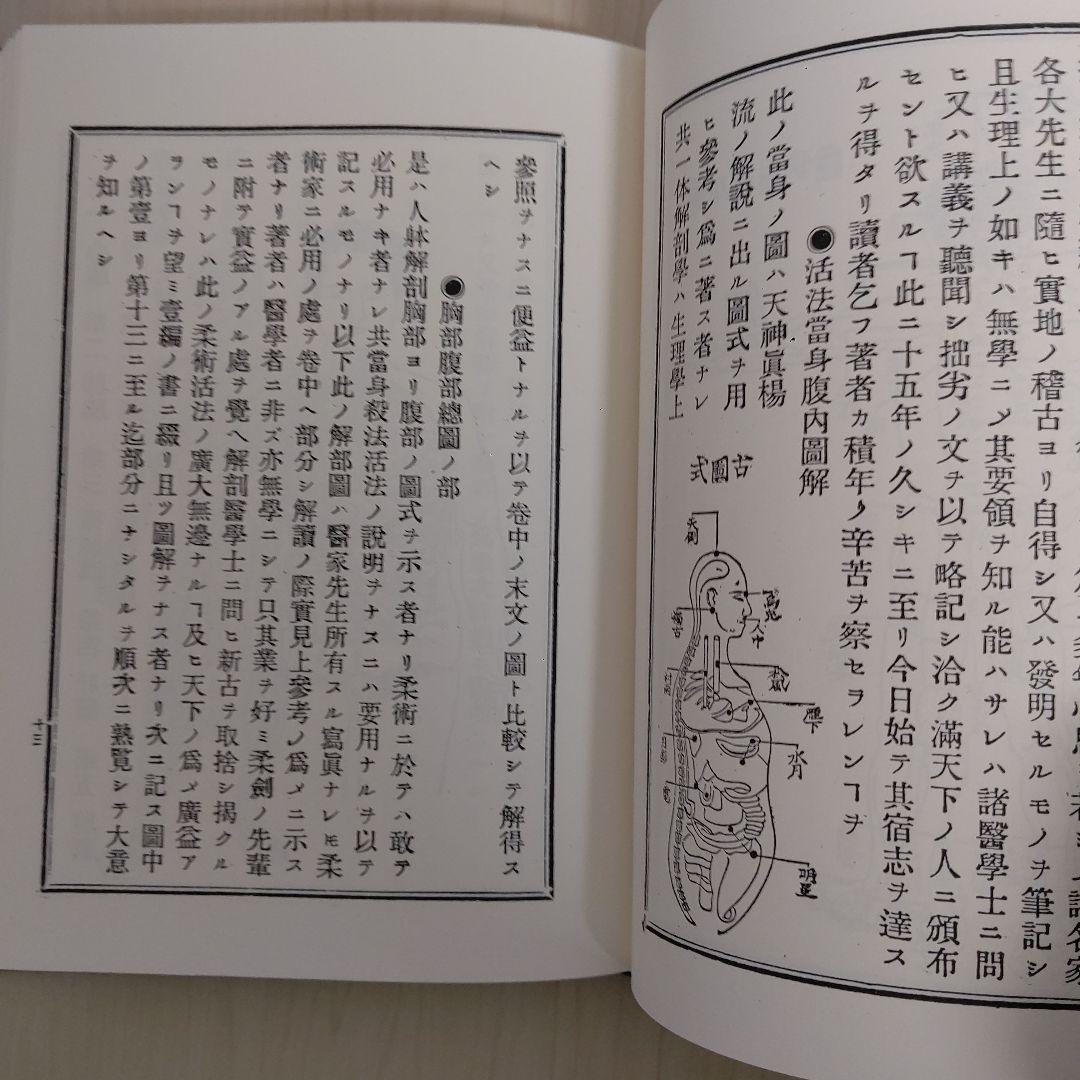 各大先生ニ隨ヒ實地ノ稽古ヨリ自得シ又ハ發明セルモノヲ筆記シ
且生理上ノ如キハ無學ニメ其要領ヲ知ル能ハサレハ諸醫學士ニ問
ヒ又ハ講義ヲ聽聞シ拙劣ノ文ヲ以テ略記シ洽ク滿天下ノ人ニ頒布
セント欲スルヿ此ニ十五年ノ久シキニ至リ今日始テ其宿志ヲ達ス
ルヲ得タリ讀者乞フ著者カ積年ノ辛苦ヲ察セヲレンヿヲ
●活法當身腹內圖解
此ノ當身ノ圖ハ天神眞楊
流ノ解說ニ出ル圖式ヲ用
ヒ參考シ爲ニ著ス者ナレ
共一体解剖學ハ生理學上
古圖式
天倒
烏兎
人中
獨古
松風
雁下
水月
月影
明星
參照ヲナスニ便益トナルヲ以テ卷中ノ末文ノ圖ト比較シテ解得ス
ヘシ
●胸部腹部總圖ノ部
是ハ人躰解剖胸部ヨリ腹部ノ圖式ヲ示ス者ナリ柔術ニ於テハ敢テ
必用ナキ者ナレ共當身殺法活法ノ說明ヲナスニハ要用ナルヲ以テ
記スルモノナリ以下此ノ解部圖ハ醫家先生所有スル寫眞ナレ𪜈柔
術家ニ必用ノ處ヲ卷中ヘ部分シ解讀ノ際實見上參考ノ爲メニ示ス
者ナリ著者ハ醫學者ニ非ズ亦無學ニシテ只其業ヲ好ミ柔劍ノ先輩
ニ附テ實益ノアル處ヲ覺ヘ解剖醫學士ニ問ヒ新古ヲ取捨シ揭クル
モノナレハ此ノ柔術活法ノ廣大無邊ナルヿ及ヒ天下ノ爲メ廣益ア
ヲンヿヲ望ミ壹編ノ書ニ綴リ且ツ圖解ヲナス者ナリ次ニ記ス圖中
ノ第壹ヨリ第十三ニ至ル迄部分ニナシタルヲ順次ニ熟覽シテ大意
ヲ知ルヘシ
十三